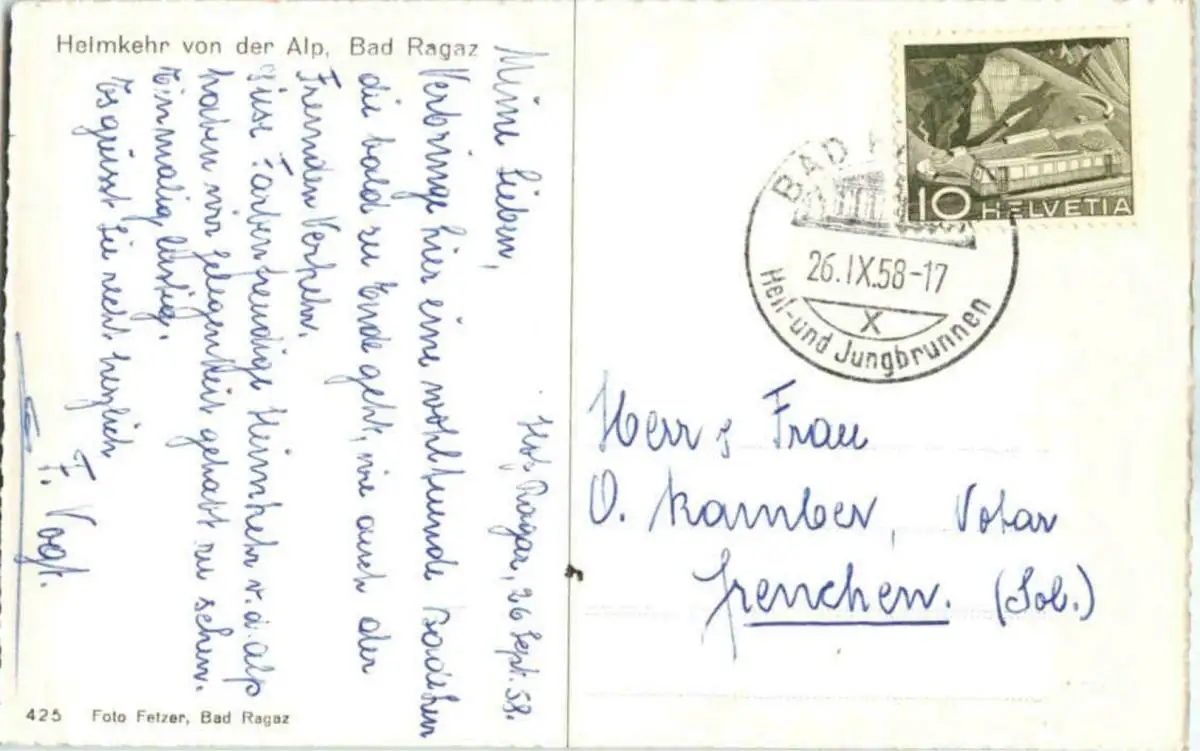 Heimkehr von der Alp, Bad Ragaz
Hof Ragaz, 26 Sept. 58.
Meine Lieben,
Verbringe hier eine wohltuende Badekur
die bald zu Ende geht, wie auch der
Fremden Verkehr.
Diese Farbenfreudige Heimkehr v. d. Alp
haben wir gelegenheit gehabt zu sehen.
Einmalig lustig.
Es grüsst Sie recht herzlich
F. Vogt.
425 Foto Fetzer, Bad Ragaz
10 HELVETIA
BAD
26.IX.58-17
X
Heil-und Jungbrunnen
Herr & Frau
O. Kamber, Notar
Grenchen. (Sol.)